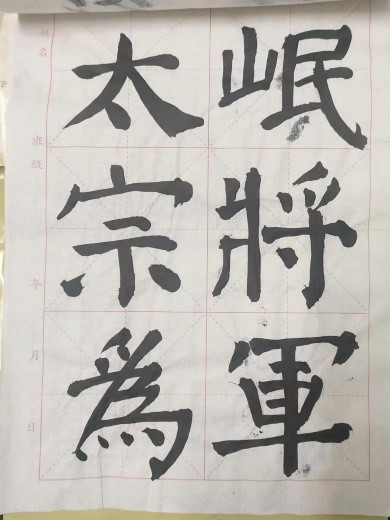 岷將軍
太宗為
姓名
班级
年
月
日